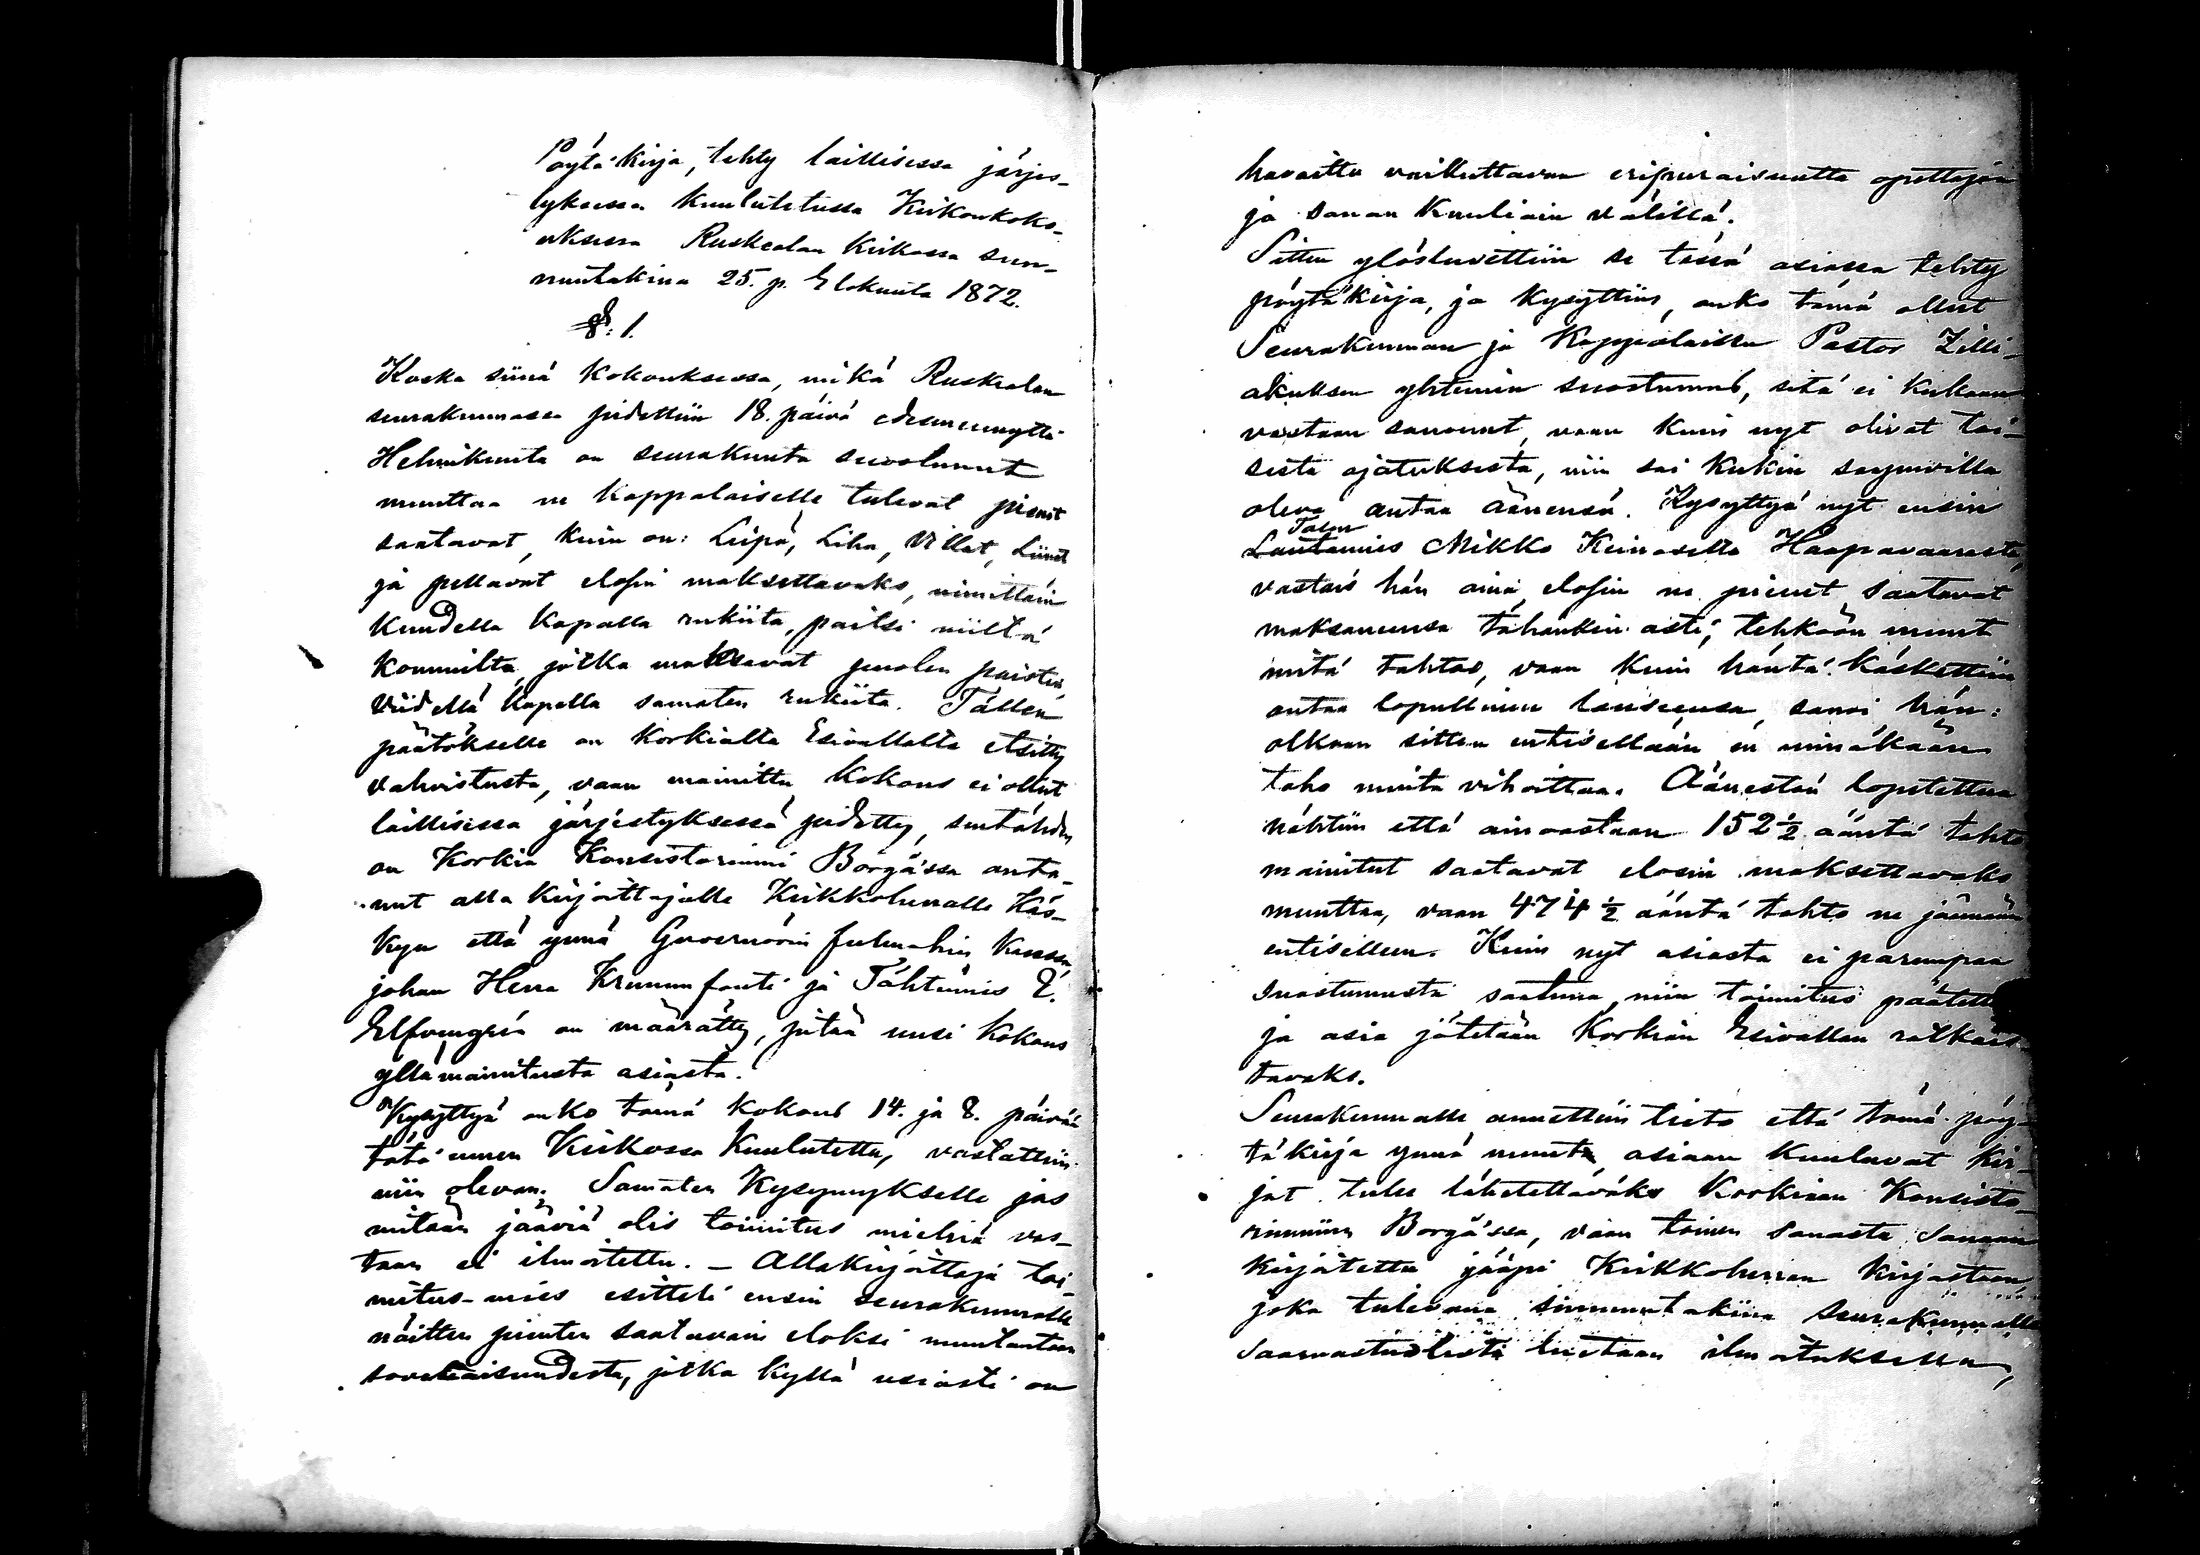 Pöytäkirja, tehty laillisessa järjes-
tyksessä kuulutetussa Kirkonkoko-
uksessa Ruskealan kirkossa sun-
nuntakina 25. p. Elokuuta 1872.
§: 1.
Koska siinä kokouksessa, mikä Ruskealan
seurakunnassa pidettiin 18. päivä edesmennyttä
Helmikuuta on seurakunta suostunut
muuttaa ne kappalaiselle tulevat pienet
saatavat, kuin on: Leipä, Liha, Villat, Liinat
ja pellavat elosin maksettavaks, nimittäin
kuudella kapalla rukiita, paitsi niiltä
konnuilta, jotka maksavat puolen paisten,
viidellä kapalla samaten rukiita. Tällen
päätökselle on korkialta Esivallalta etsitty
vahvistusta, vaan mainittu kokous ei ollut
laillisessa järjestyksessä pidetty, sentähden
on Korkia Konsistoriumi Borgå'ssa anta-
nut alla kirjoittajalle Kirkkoherralle käs-
kyn että ynnä Guvernöörin kanssa
johon Herra Kruununfouti ja Tähtimies E.
Elfvengrén on määrätty, pitää uusi kokous
yllämainitusta asiasta.
Kysyttyä onko tämä kokous 14. ja 8. päivää
tätä ennen Kirkossa kuulutettu, vastattiin
niin olevan. Samaten kysymykselle jos
mitään jääviä olis toimitus miehiä vas-
taan ei ilmoitettu. – Allakirjoittaja toi-
mitus-mies esitteli ensin seurakunnalle
näitten pienten saatavain eloksi muutantaan
soveliaisuudesta, jotka kyllä usiasti on
havaittu vaikuttavan eripuraisuutta opettajan
ja sanan kuuliain välillä.
Sitten ylösluvettiin se tässä asiassa tehty
pöytäkirja, ja kysyttiin, onko tämä ollut
Seurakunnan ja Kappalaisen Pastor Zilli-
akuksen yhteinen suostumus, sitä ei kukaan
vastaan sanonut, vaan kuin nyt olivat toi-
sesta ajatuksesta, niin sai kukin saapuvilla
oleva antaa äänensä. Kysyttyä nyt ensin
Talon
Lautamies Mikko Keinoselta Haapavaarasta,
vastais hän aina elosin ne pienet saatavat
maksaneensa tähänkin asti, tehköön muut
mitä tahtoo, vaan kuin häntä käskettiin
antaa lopullinen lauseensa, sanoi hän:
olkoon sitten entisellään en minäkään
taho muita vihoittaa. Äänestön lopetettua
nähtiin että ainoastaan 152½ ääntä tahto
mainitut saatavat elosin maksettavaks
muuttaa, vaan 474½ ääntä tahto ne jäämään
entiselleen. Kuin nyt asiasta ei parempaa
suostumusta saatunna, niin toimitus päätett
ja asia jätetään Korkian Esivallan ratkais
tavaks.
Seurakunnalle annettiin tieto että tämä pöy-
täkirja ynnä muut asiaan kuuluvat kir-
jat tulee lähetettäväks Korkiaan Konsisto-
riumiin Borgå'ssa, vaan toinen sanasta sanaan
kirjotettu jääpi Kirkkoherran kirjastoon,
joka tulevana sunnuntakina seurakunnalle
Saarnastuolista luetaan ilmoituksella,